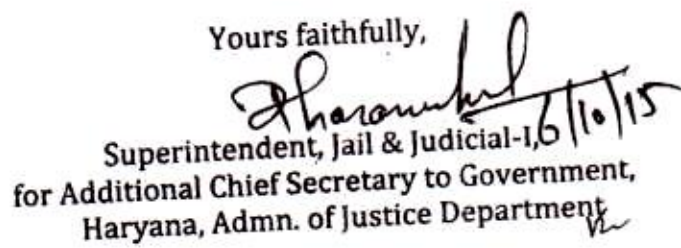 Yours faithfully,
Superintendent, Jail & Judicial-I, 6/10/15
for Additional Chief Secretary to Government,
Haryana, Admn. of Justice Department